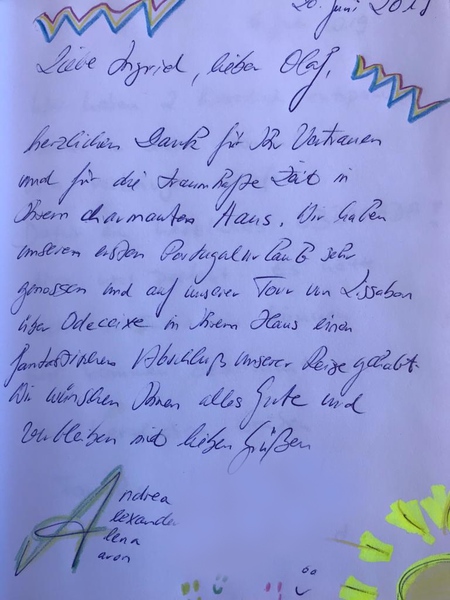 20. Juni 2018
Liebe Ingrid, lieber Olaf,
herzlichen Dank für Ihr Vertrauen
und für die traumhafte Zeit in
Ihrem charmanten Haus. Wir haben
unseren ersten Portugalurlaub sehr
genossen und auf unserer Tour von Lissabon
über Odeceixe in Ihrem Haus einen
fantastischen Abschluß unserer Reise gehabt.
Wir wünschen Ihnen alles Gute und
verbleiben mit lieben Grüßen
Andrea
Alexander
Alena
Aaron